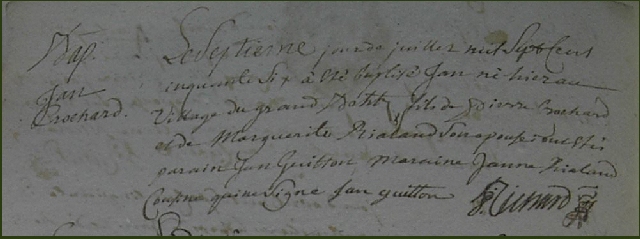 Bap.
Jan
Brochard.
Le Septieme jour de juillet mil Sept Cent
cinquante Six a été baptisé Jan né hier au
Village du grand fils de Pierre Brochard
et de Marguerite Rialand Son epouse
parain Jan Guitton Maraine Janne Rialand
Cousine qui ne Signe Jan guitton Richard